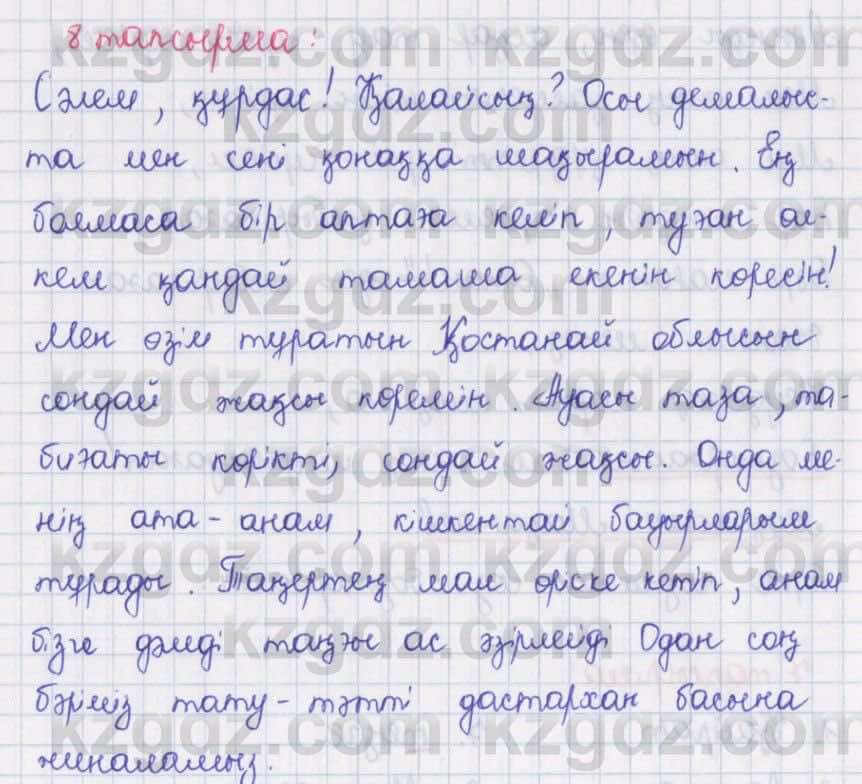 8 тапсырма:
Сәлем, құрдас! Қалайсың? Осы демалыс-
та мен сені қонаққа шақырамын. Ең
болмаса бір аптаға келіп, туған өл-
кем қандай тамаша екенін көресің!
Мен өзім тұратын Қостанай облысын
сондай жақсы көремін. Ауасы таза, та-
биғаты көрікті, сондай жақсы. Онда ме-
нің ата-анам, кішкентай бауырларым
тұрады. Таңертең мал өріске кетіп, анам
бізге дәмді таңғы ас әзірлейді Одан соң
бәріміз тату-тәтті дастархан басына
жиналамыз.
kzgdz.com